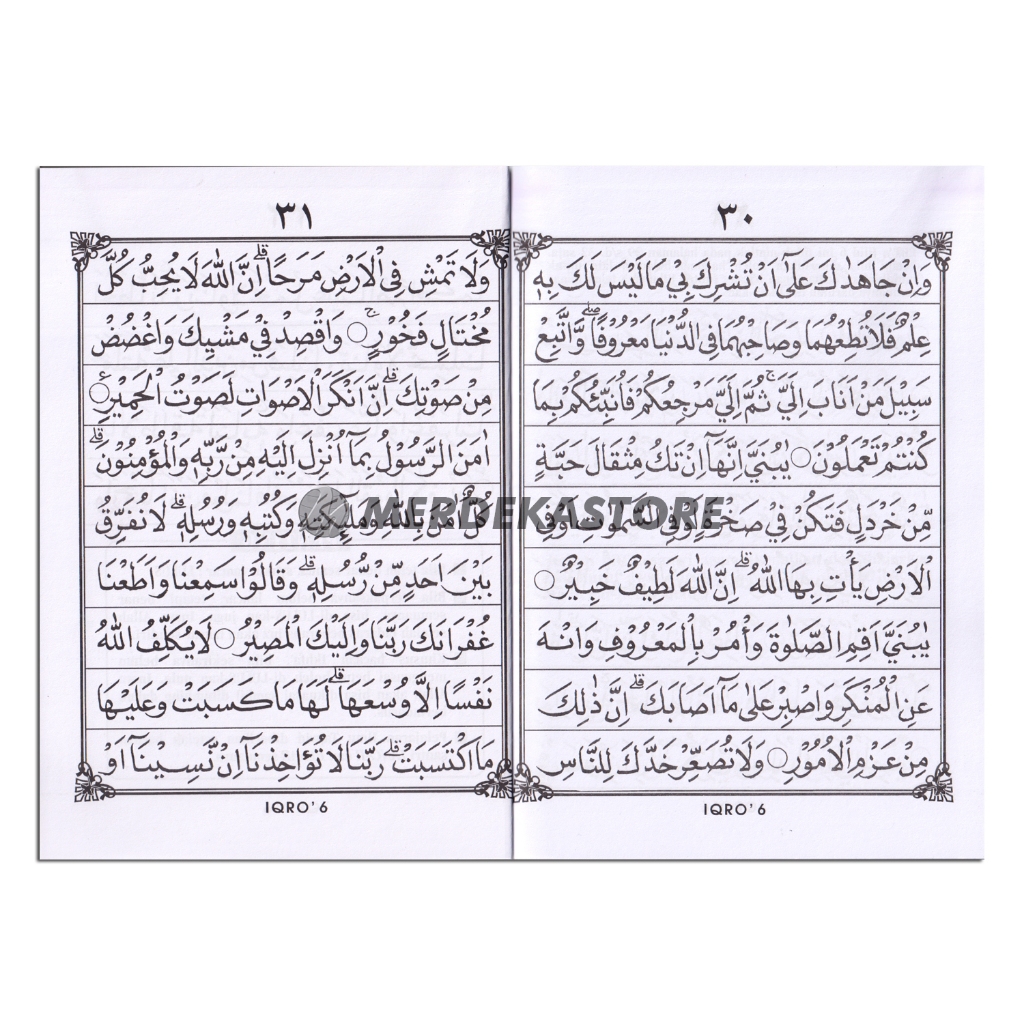 ٣٠
وَاِنْ جَاهَدٰكَ عَلٰٓى اَنْ تُشْرِكَ بِيْ مَا لَيْسَ لَكَ بِهٖ
عِلْمٌ فَلَا تُطِعْهُمَا وَصَاحِبْهُمَا فِى الدُّنْيَا مَعْرُوْفًا ۖ وَّاتَّبِعْ
سَبِيْلَ مَنْ اَنَابَ اِلَيَّ ۚ ثُمَّ اِلَيَّ مَرْجِعُكُمْ فَاُنَبِّئُكُمْ بِمَا
كُنْتُمْ تَعْمَلُوْنَ ○ يٰبُنَيَّ اِنَّهَآ اِنْ تَكُ مِثْقَالَ حَبَّةٍ
مِّنْ خَرْدَلٍ فَتَكُنْ فِيْ صَخْرَةٍ اَوْ فِى السَّمٰوٰتِ اَوْ فِى
الْاَرْضِ يَأْتِ بِهَا اللّٰهُ ۗ اِنَّ اللّٰهَ لَطِيْفٌ خَبِيْرٌ ○
يٰبُنَيَّ اَقِمِ الصَّلٰوةَ وَأْمُرْ بِالْمَعْرُوْفِ وَانْهَ
عَنِ الْمُنْكَرِ وَاصْبِرْ عَلٰى مَآ اَصَابَكَ ۗ اِنَّ ذٰلِكَ
مِنْ عَزْمِ الْاُمُوْرِ ○ وَلَا تُصَعِّرْ خَدَّكَ لِلنَّاسِ
IQRO' 6
٣١
وَلَا تَمْشِ فِى الْاَرْضِ مَرَحًا ۗ اِنَّ اللّٰهَ لَا يُحِبُّ كُلَّ
مُخْتَالٍ فَخُوْرٍ ○ ۚ وَاقْصِدْ فِيْ مَشْيِكَ وَاغْضُضْ
مِنْ صَوْتِكَ ۗ اِنَّ اَنْكَرَ الْاَصْوَاتِ لَصَوْتُ الْحَمِيْرِ ○
اٰمَنَ الرَّسُوْلُ بِمَآ اُنْزِلَ اِلَيْهِ مِنْ رَّبِّهٖ وَالْمُؤْمِنُوْنَ ۗ
كُلٌّ اٰمَنَ بِاللّٰهِ وَمَلٰۤىِٕكَتِهٖ وَكُتُبِهٖ وَرُسُلِهٖ ۗ لَا نُفَرِّقُ
بَيْنَ اَحَدٍ مِّنْ رُّسُلِهٖ ۗ وَقَالُوْا سَمِعْنَا وَاَطَعْنَا
غُفْرَانَكَ رَبَّنَا وَاِلَيْكَ الْمَصِيْرُ ○ لَا يُكَلِّفُ اللّٰهُ
نَفْسًا اِلَّا وُسْعَهَا ۗ لَهَا مَا كَسَبَتْ وَعَلَيْهَا
مَا اكْتَسَبَتْ ۗ رَبَّنَا لَا تُؤَاخِذْنَآ اِنْ نَّسِيْنَآ اَوْ
IQRO' 6
MERDEKASTORE